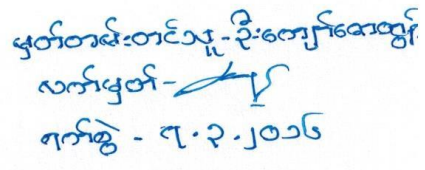 မှတ်တမ်းတင်သူ - ဦးကျော်ဇောထွန်း
လက်မှတ် -
ရက်စွဲ - ၅.၃.၂၀၁၆